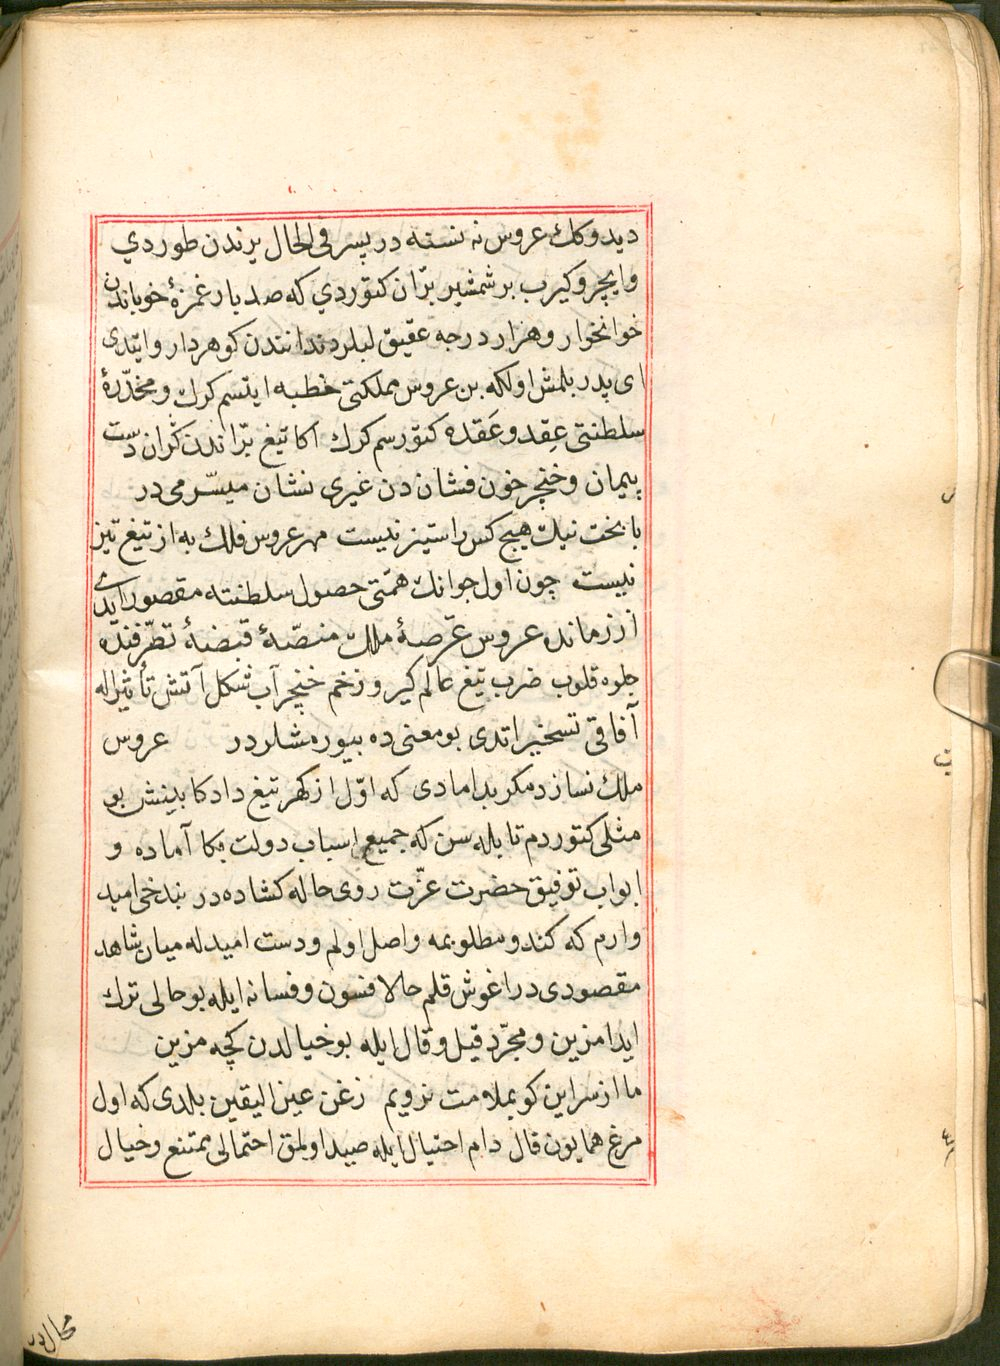 ديدوكك عروس نه نسنه در پسر فی الحال يرندن طوردي
وايچرو كيرب بر شمشير برّان كتوردي كه صد بار غمزۀ خوباندن
خوانخوار وهزار درجه عقيق لبلر دنداننندن كوهردار وايتدى
اى پدر بلمش اول كه بن عروس مملكتى خطبه ايتسم كرك ومخدّرۀ
سلطنتى عِقد وعَقده كتورسم كرك اكا تيغ برّاندن كران دست
پيمان وخنجر خون فشان دن غيرى نشان ميسّر مى در
با بخت نيك هيچ كس را ستيز نيست مهر عروس فلك به از تيغ تيز
نيست چون اول جوانك همّتى حصول سلطنته مقصور ايدى
از زمانده عروس عرصۀ ملك منصّۀ قبضۀ تصرّفنده
جلوه قلوب ضرب تيغ عالم كير وزخم خنجر آب شكل آتش تأثيرله
آفاقى تسخير اتدى بو معنى ده بيورمشلردر عروس
ملك نسازد مكر بدامادى كه اوّل از كهر تيغ داد كابينش بو
مثلى كتوردم تا بله سن كه جميع اسباب دولت بكا آماده و
ابواب توفيق حضرت عزّت روى حاله كشاده در بندخى اميد
وارم كه كندو مطلوبمه واصل اولم ودست اميدله ميان شاهد
مقصودى در اغوش قلم حالا فسون وفسانه ايله بو حالى ترك
ايدامزين ومجرّد قيل وقال ايله بو خيالدن كچه مزين
ما از سر اين كو بملامت نرويم زغن عين اليقين بلدى كه اول
مرغ همايون قال دام احتيال ايله صيد اولمق احتمالى ممتنع وخيال
محالدر